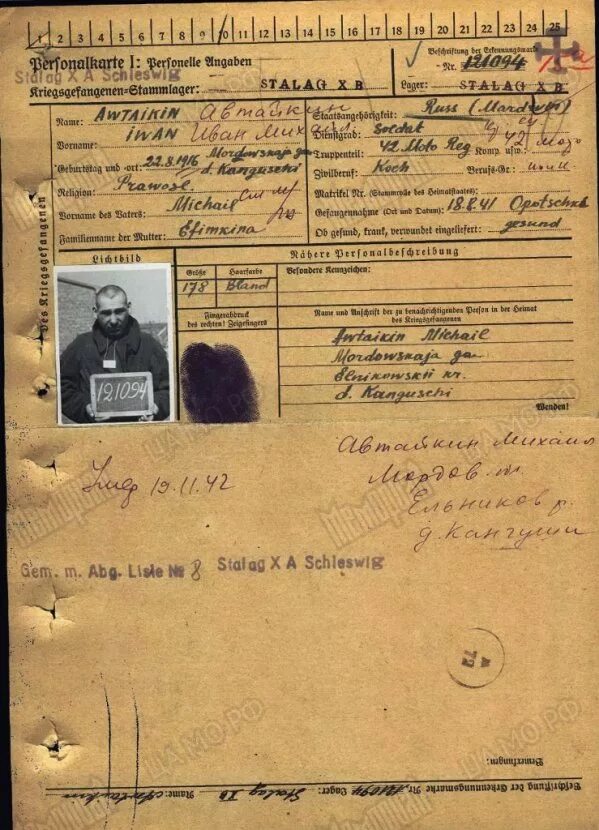 1 2 3 4 5 6 7 8 9 10 11 12 13 14 15 16 17 18 19 20 21 22 23 24 25
Personalkarte I: Personelle Angaben
Beschriftung der Erkennungsmarke
Nr. 121094
Stalag X A Schleswig
Kriegsgefangenen-Stammlager: STALAG X B
Lager: STALAG X B
Des Kriegsgefangenen
Name: AWTAIKIN Автайкин
Vorname: IWAN Иван Михаил
Geburtstag und -ort: 22.8.1916 Mordowskaja ga.
d. Kanguschi
Religion: Prawosl.
Vorname des Vaters: Michail
Familienname der Mutter: Efimkina
Staatsangehörigkeit: Russ (Mardwin)
Dienstgrad: Soldat
Truppenteil: 42 Moto Reg Komp. usw.:
Zivilberuf: Koch Berufs-Gr.:
Matrikel Nr. (Stammrolle des Heimatstaates):
Gefangennahme (Ort und Datum): 18.8.41 Opotschka
Ob gesund, krank, verwundet eingeliefert: gesund
Lichtbild
121094
Nähere Personalbeschreibung
Größe Haarfarbe Besondere Kennzeichen:
178 Bland
Fingerabdruck
des rechten! Zeigefingers
Name und Anschrift der zu benachrichtigenden Person in der Heimat
des Kriegsgefangenen
Awtaikin Michail
Mordowskaja ga.
Elnikowskii kr.
d. Kanguschi
Wenden!
Автайкин Михаил
Мордов.
Ельников р.
д. Кангуши
Умер 19.11.42
Gem. m. Abg. Liste № 8 Stalag X A Schleswig
A
72
Bemerkungen:
Beschriftung der Erkennungsmarke Nr. 121094 Lager: Stalag XB Name: Awtaikin
Мемориал
ЦАМО РФ